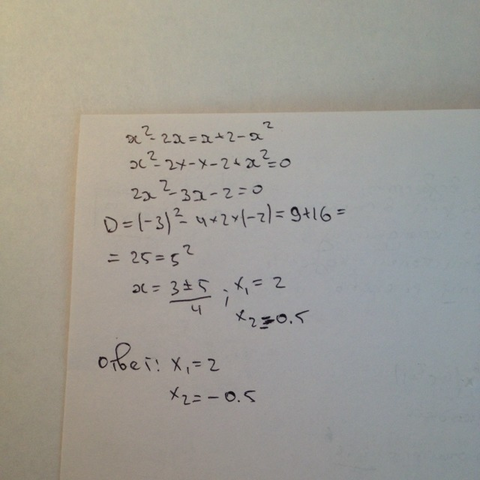 x²-2x=x+2-x²
x²-2x-x-2+x²=0
2x²-3x-2=0
D=(-3)²-4×2×(-2)=9+16=
=25=5²
x=3±5/4; x₁=2
x₂=-0.5
Ответ: x₁=2
x₂=-0.5